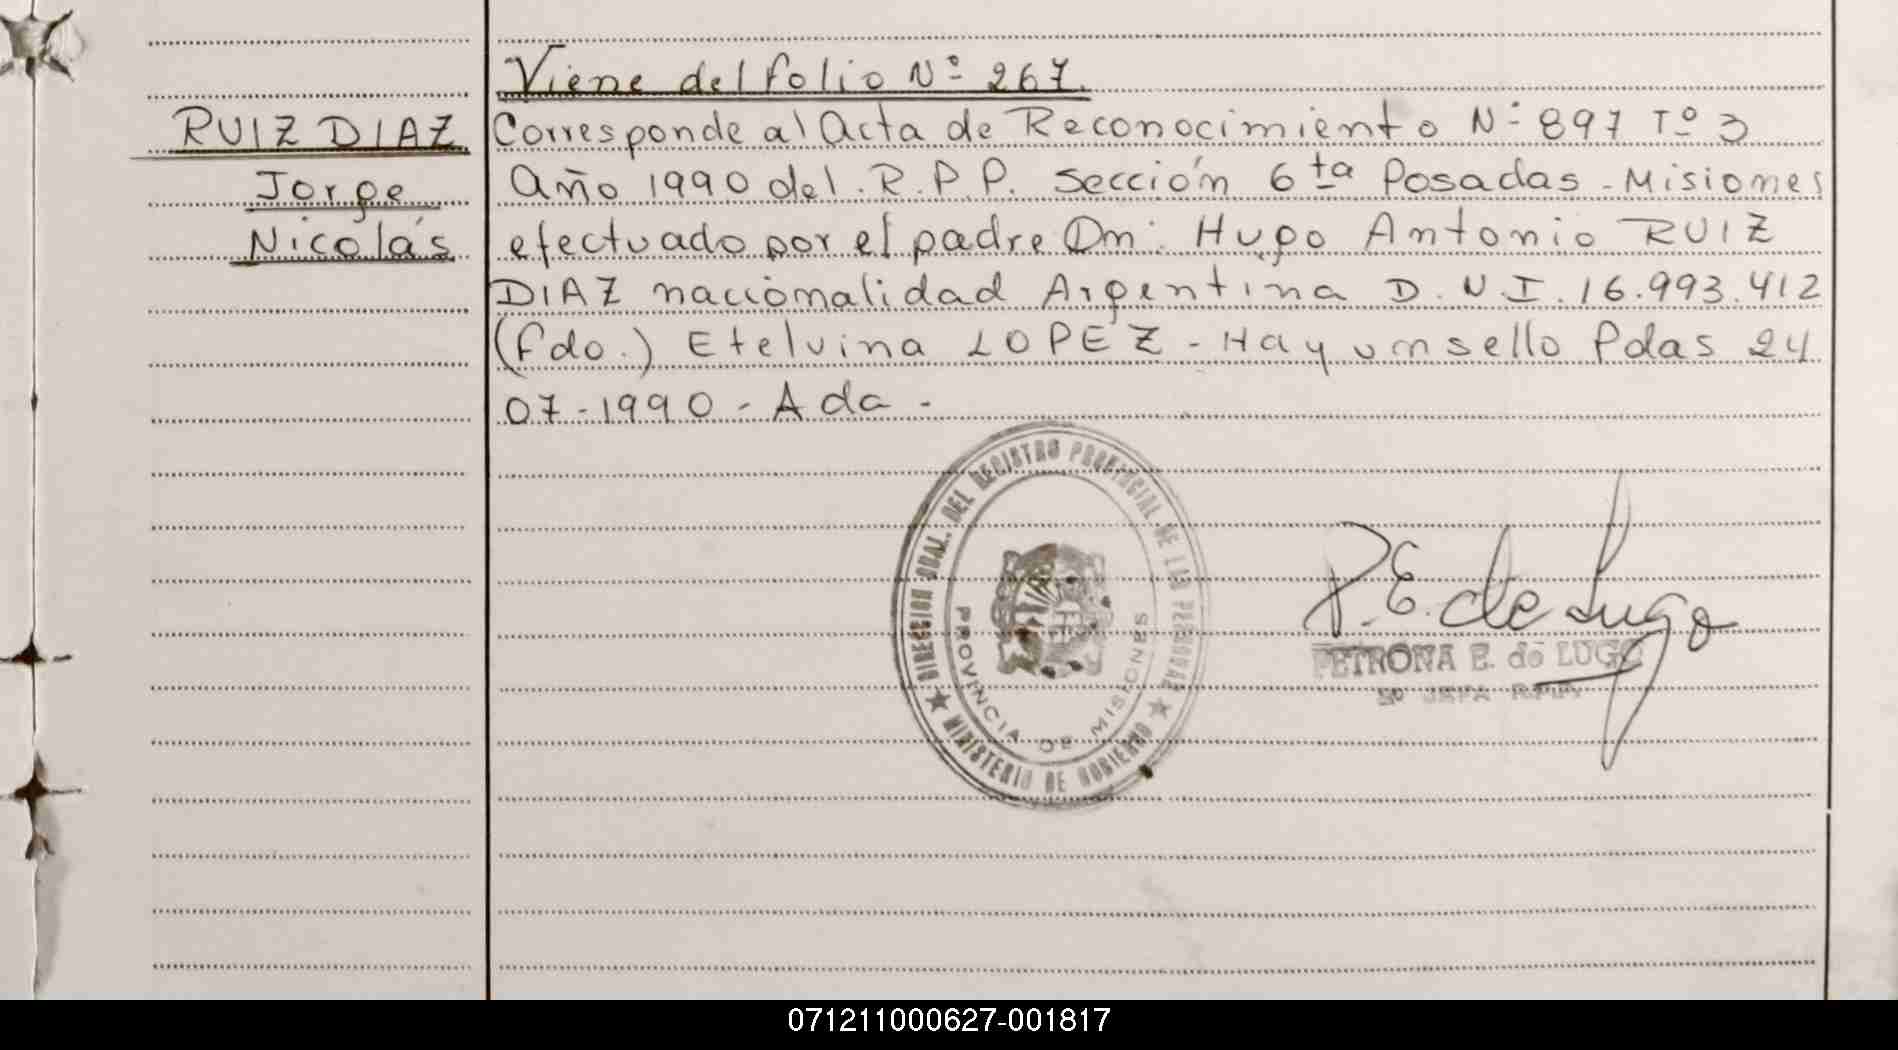 Viene del folio Nº 267.
RUIZ DIAZ
Jorge
Nicolás
Corresponde al Acta de Reconocimiento Nº 897 Tº 3
Año 1990 del R.P.P. Sección 6ta Posadas - Misiones
efectuado por el padre Dn: Hugo Antonio RUIZ
DIAZ nacionalidad Argentina D.N.I. 16.993.412
(fdo.) Etelvina LOPEZ - Hay un sello Pdas 24
07-1990 - Ada -
DIRECCION GRAL. DEL REGISTRO PROVINCIAL DE LAS PERSONAS
MINISTERIO DE GOBIERNO
PROVINCIA DE MISIONES
P.E. de Lugo
PETRONA E. de LUGO
JEFA R.P.P.
071211000627-001817